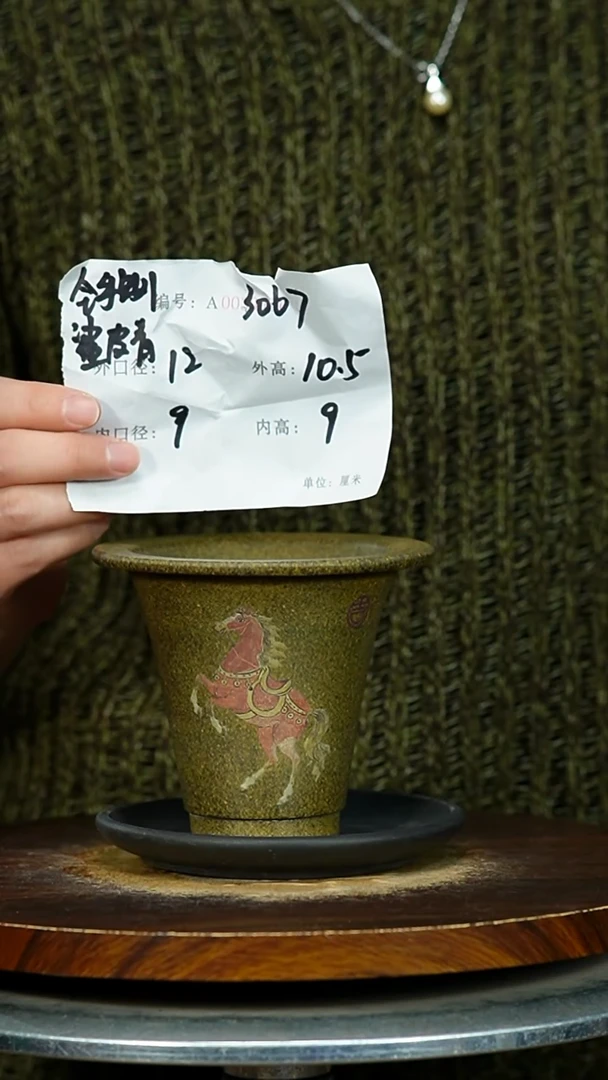 全手拉 编号: A003067
鲨皮青
外口径: 12 外高: 10.5
内口径: 9 内高: 9
单位: 厘米